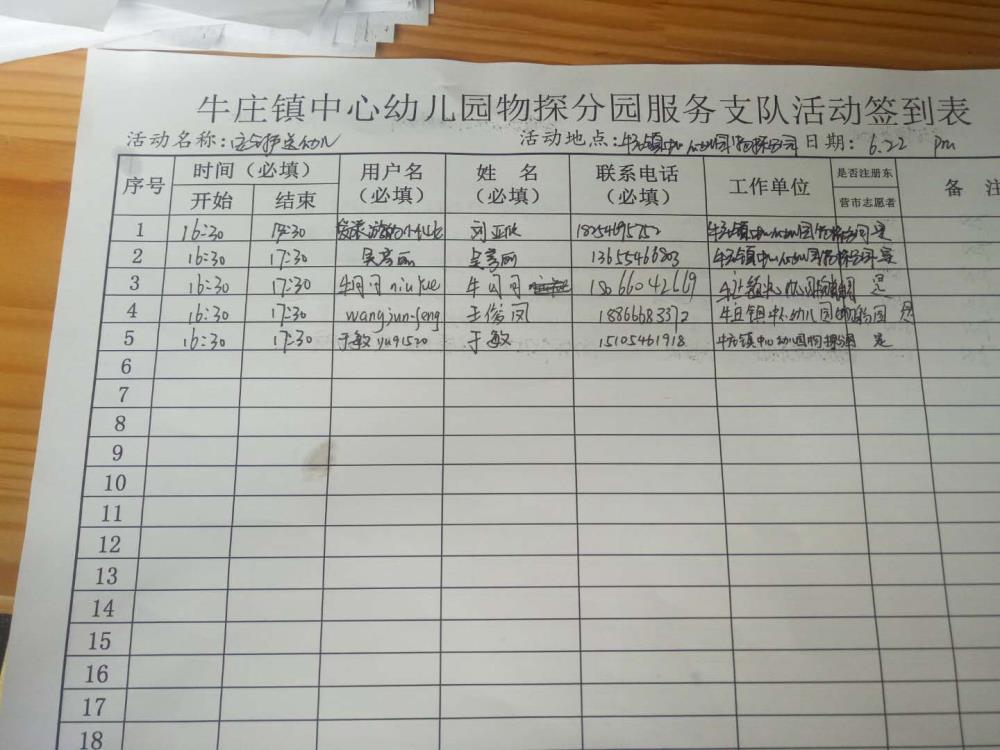 牛庄镇中心幼儿园物探分园服务支队活动签到表
活动名称: 护送幼儿 活动地点: 牛庄镇中心幼儿园物探分园 日期: 6.22 pm
序号 时间（必填） 用户名（必填） 姓 名（必填） 联系电话（必填） 工作单位 是否注册东营市志愿者 备 注
开始 结束
1 16:30 17:30 刘亚欣 18254695752 牛庄镇中心幼儿园物探分园 是
2 16:30 17:30 吴彦丽 吴彦丽 13655466803 牛庄镇中心幼儿园物探分园 是
3 16:30 17:30 牛闩闩 niu yue 牛闩闩 18066042669 牛庄镇中心幼儿园物探分园 是
4 16:30 17:30 wangjun-feng 王俊凤 18866683372 牛庄镇中心幼儿园物探分园 是
5 16:30 17:30 于敏 yu91520 于敏 15105461918 牛庄镇中心幼儿园物探分园 是
6
7
8
9
10
11
12
13
14
15
16
17
18